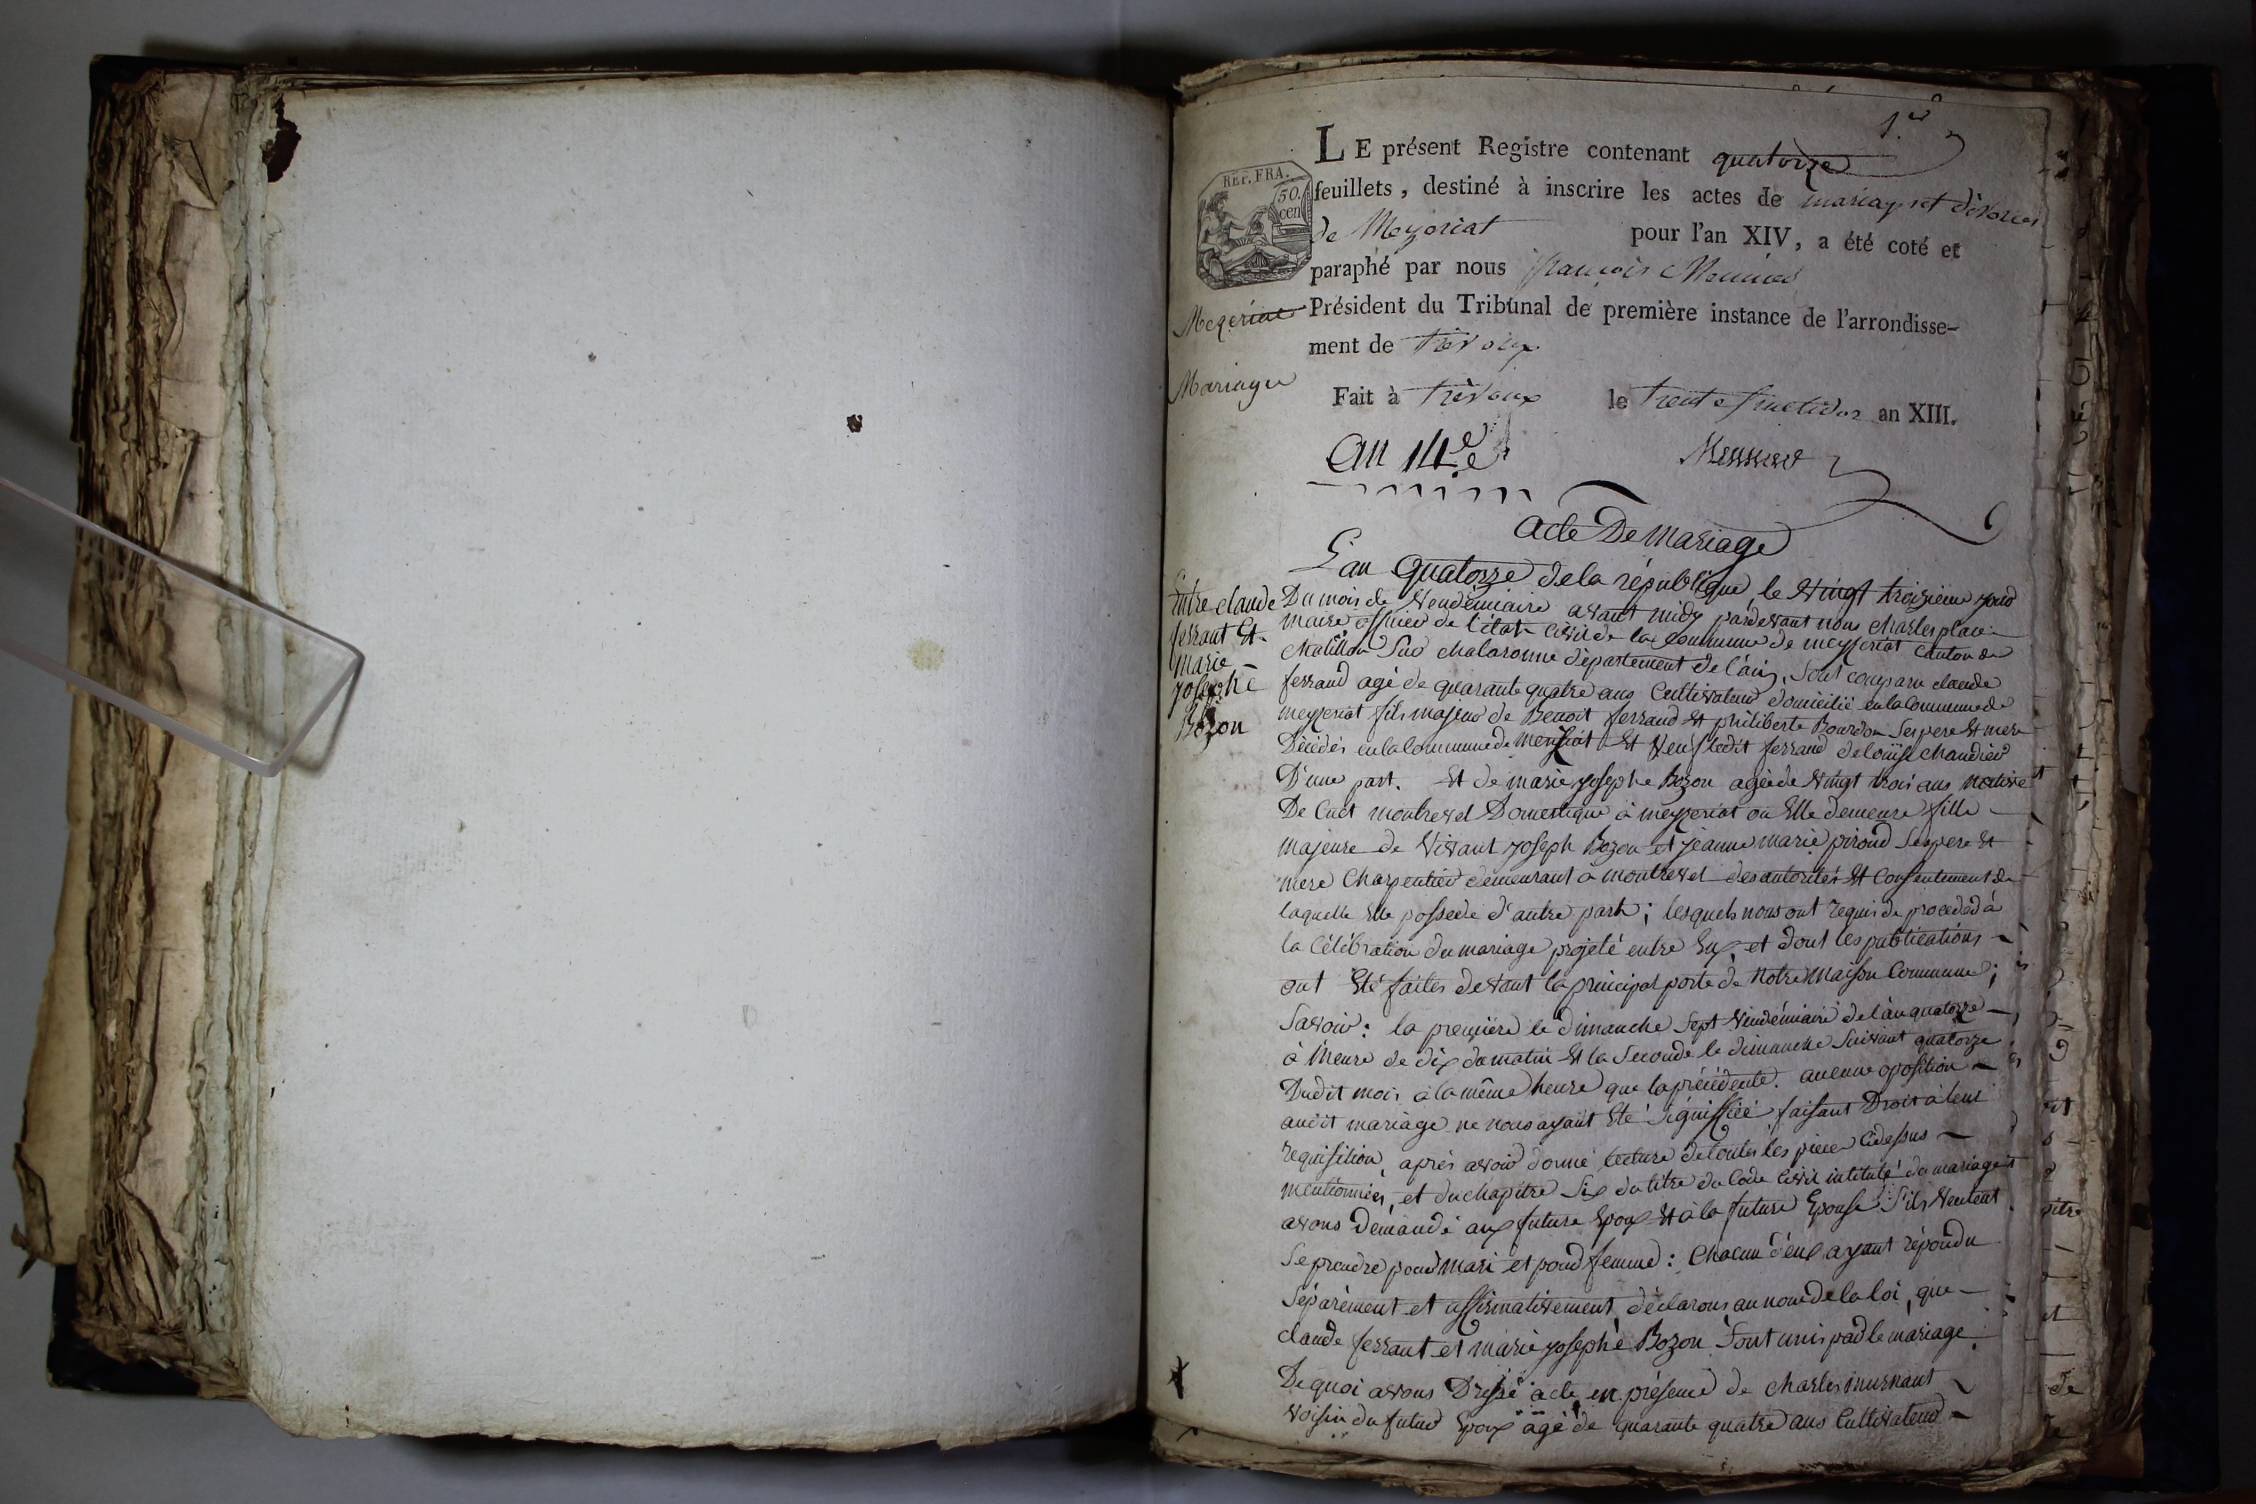 1.er
LE présent Registre contenant quatorze
feuillets, destiné à inscrire les actes de mariages et divorces
de Mezeriat pour l'an XIV, a été coté et
paraphé par nous françois Meunier
Président du Tribunal de première instance de l'arrondisse-
ment de trevoux
Fait à trévoux le trente fructidor an XIII.
REP. FRA.
50.
cen
Mezeriat
Mariages
an 14.e
Meunier
acte De mariage
Entre claude
ferraut Et
marie
josephe
Bozon
L'an quatorze de la république, le vingt troizième jour
Du mois de vendémiaire avant midy pardevant nous charles place
maire officier de l'état civil de la commune de meyzeriat canton de
chatillon sur chalaronne département de l'ain, sont comparu claude
ferraud agé de quarante quatre ans Cultivateur domicilié en la commune de
meyzeriat fils majeur de Benoit ferraud et philiberte Bourdon ses pere et mere
Décédés en la commune de meyziat Et veuf ledit ferraud de louise chandier
D'une part. Et de marie josephe Bozon agée de vingt trois ans native
De Cuet montrevel Domestique à meyzeriat ou Elle demeure fille
majeure de vivant joseph Bozon et jeanne marie piroud ses pere Et
mere Charpentier demeurant à montrevel des autorités Et Consentement de
laquelle Elle possede d'autre part; lesquels nous ont requis de proceder à
la Célébration du mariage projeté entre Eux, et dont les publications
ont Eté faites devant la principal porte de Notre Maison Commune;
Savoir: la première le dimanche sept vendémiaire de l'an quatorze
à l'heure de dix du matin Et la Seconde le dimanche suivant quatorze
Dudit mois à la même heure que la précédente. aucune oposition
audit mariage ne nous ayant Eté signiffiée faisant Droit à leur
requisition, après avoir donné lecture de toutes les pieces cidessus
mentionnées, et du chapitre six du titre du Code Civil intitulé du mariage
avons demandé aux future Epoux Et à la future Epouse s'ils veulent
se prendre pour mari et pour femme: Chacun d'eux ayant répondu
séparément et affirmativement, déclarons au nom de la loi, que
claude ferraut et marie josephe Bozon sont unis par le mariage.
De quoi avons Dressé acte en présence de charles
voisin du futur Epoux agé de quarante quatre ans Cultivateur